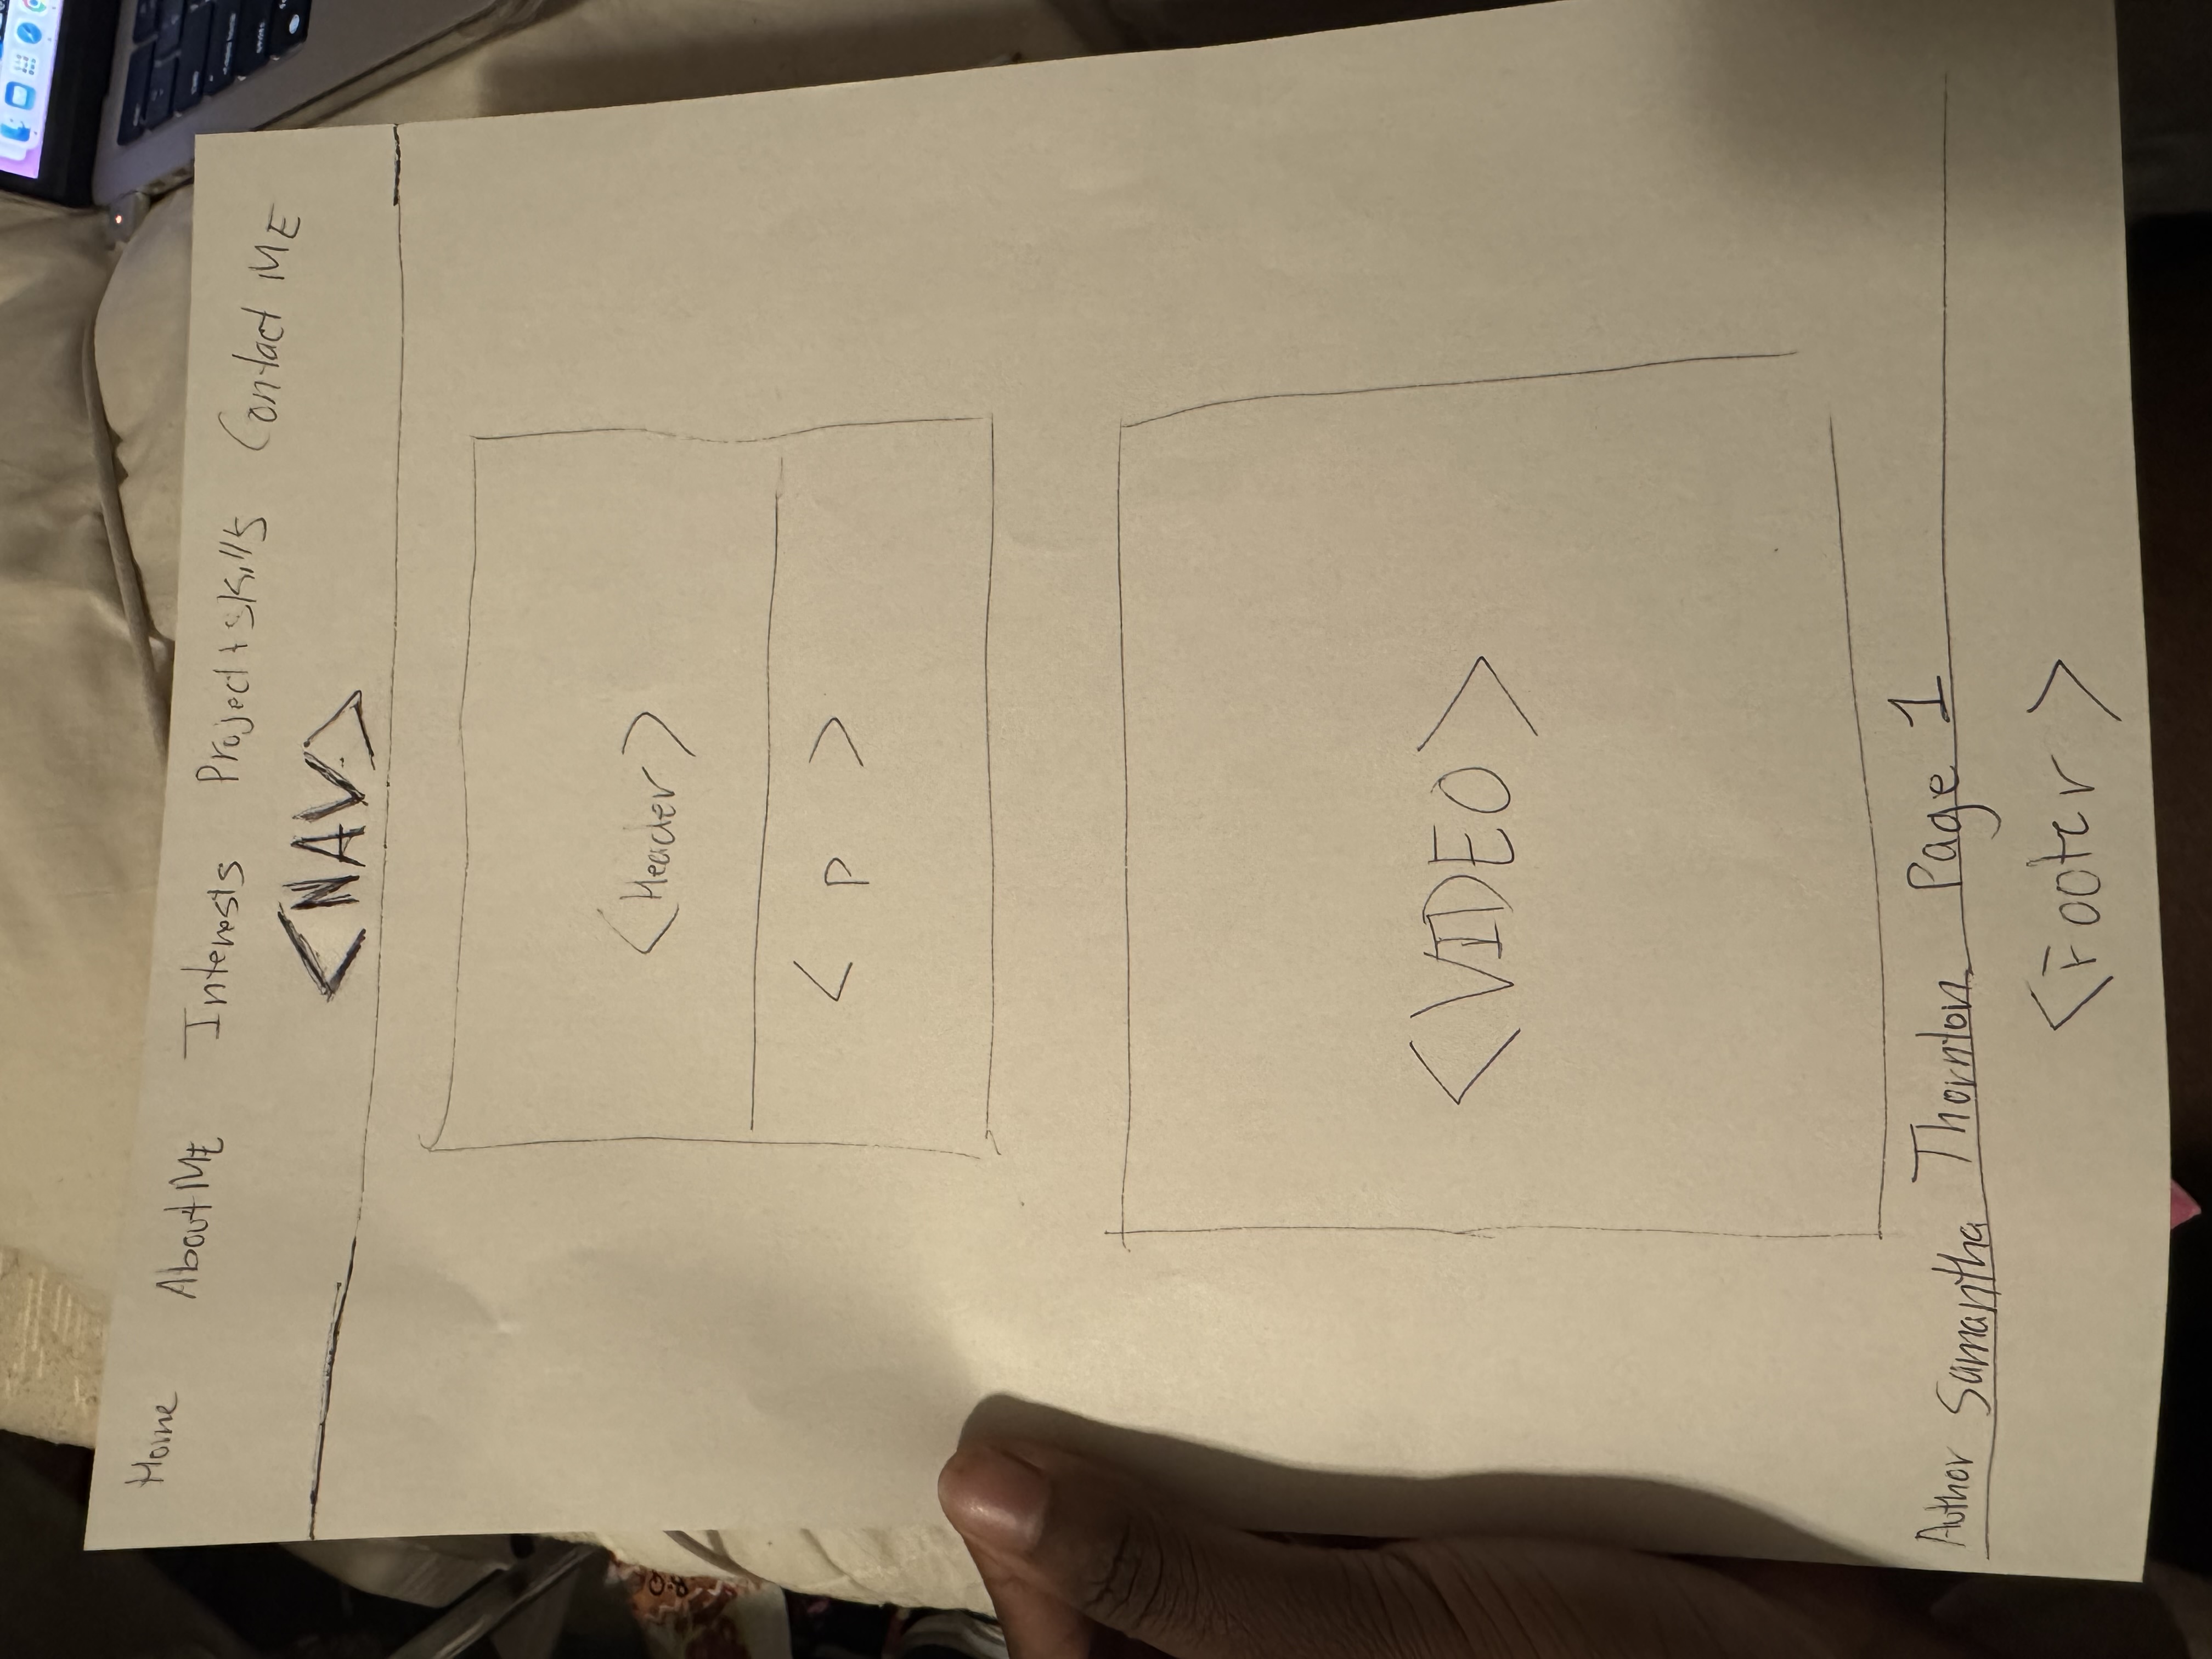 Home About ME Interests Project + skills Contact ME
<NAV>
<Header>
< p >
<VIDEO>
Author Samantha Thornton Page 1
<Footer>